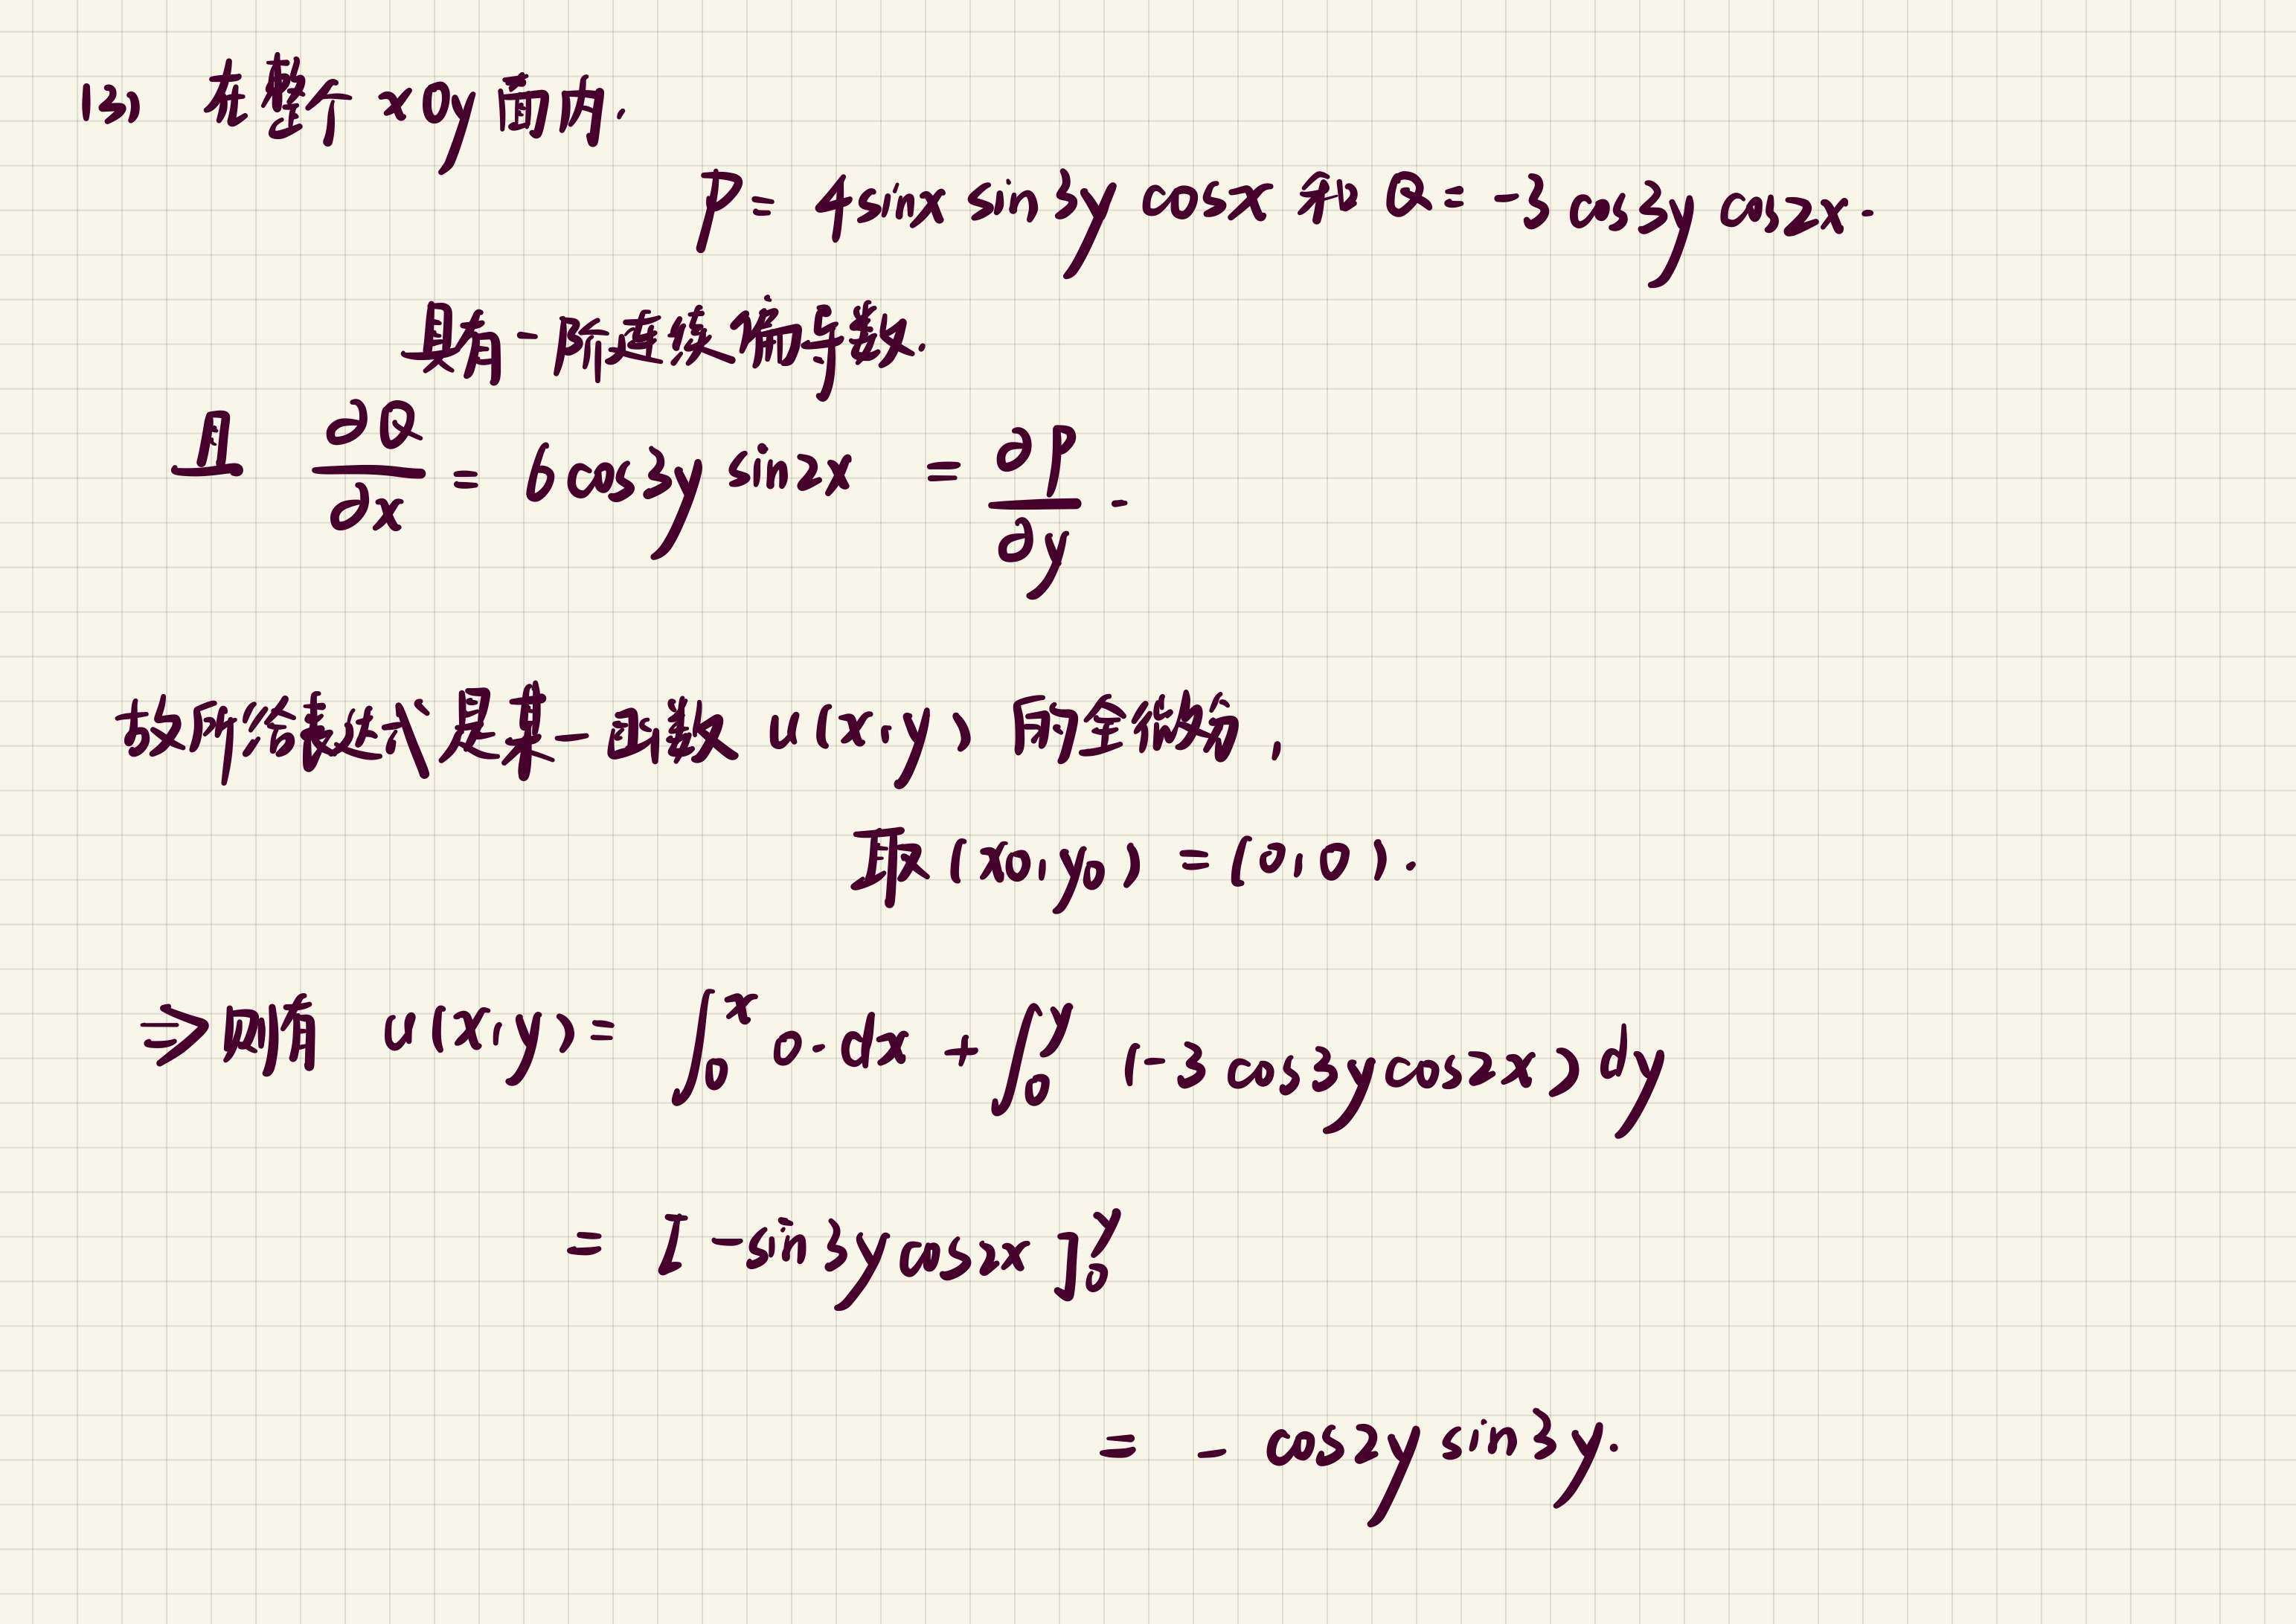 (3) 在整个 xOy 面内.
P = 4sinx sin3y cosx 和 Q = -3 cos3y cos2x.
具有一阶连续偏导数.
且 ∂Q/∂x = 6cos3y sin2x = ∂P/∂y.
故所给表达式是某一函数 u(x,y) 的全微分,
取(x0,y0) = (0,0).
⇒ 则有 u(x,y) = ∫₀ˣ 0·dx + ∫₀ʸ (-3cos3ycos2x)dy
= [-sin3ycos2x]₀ʸ
= - cos2y sin3y.